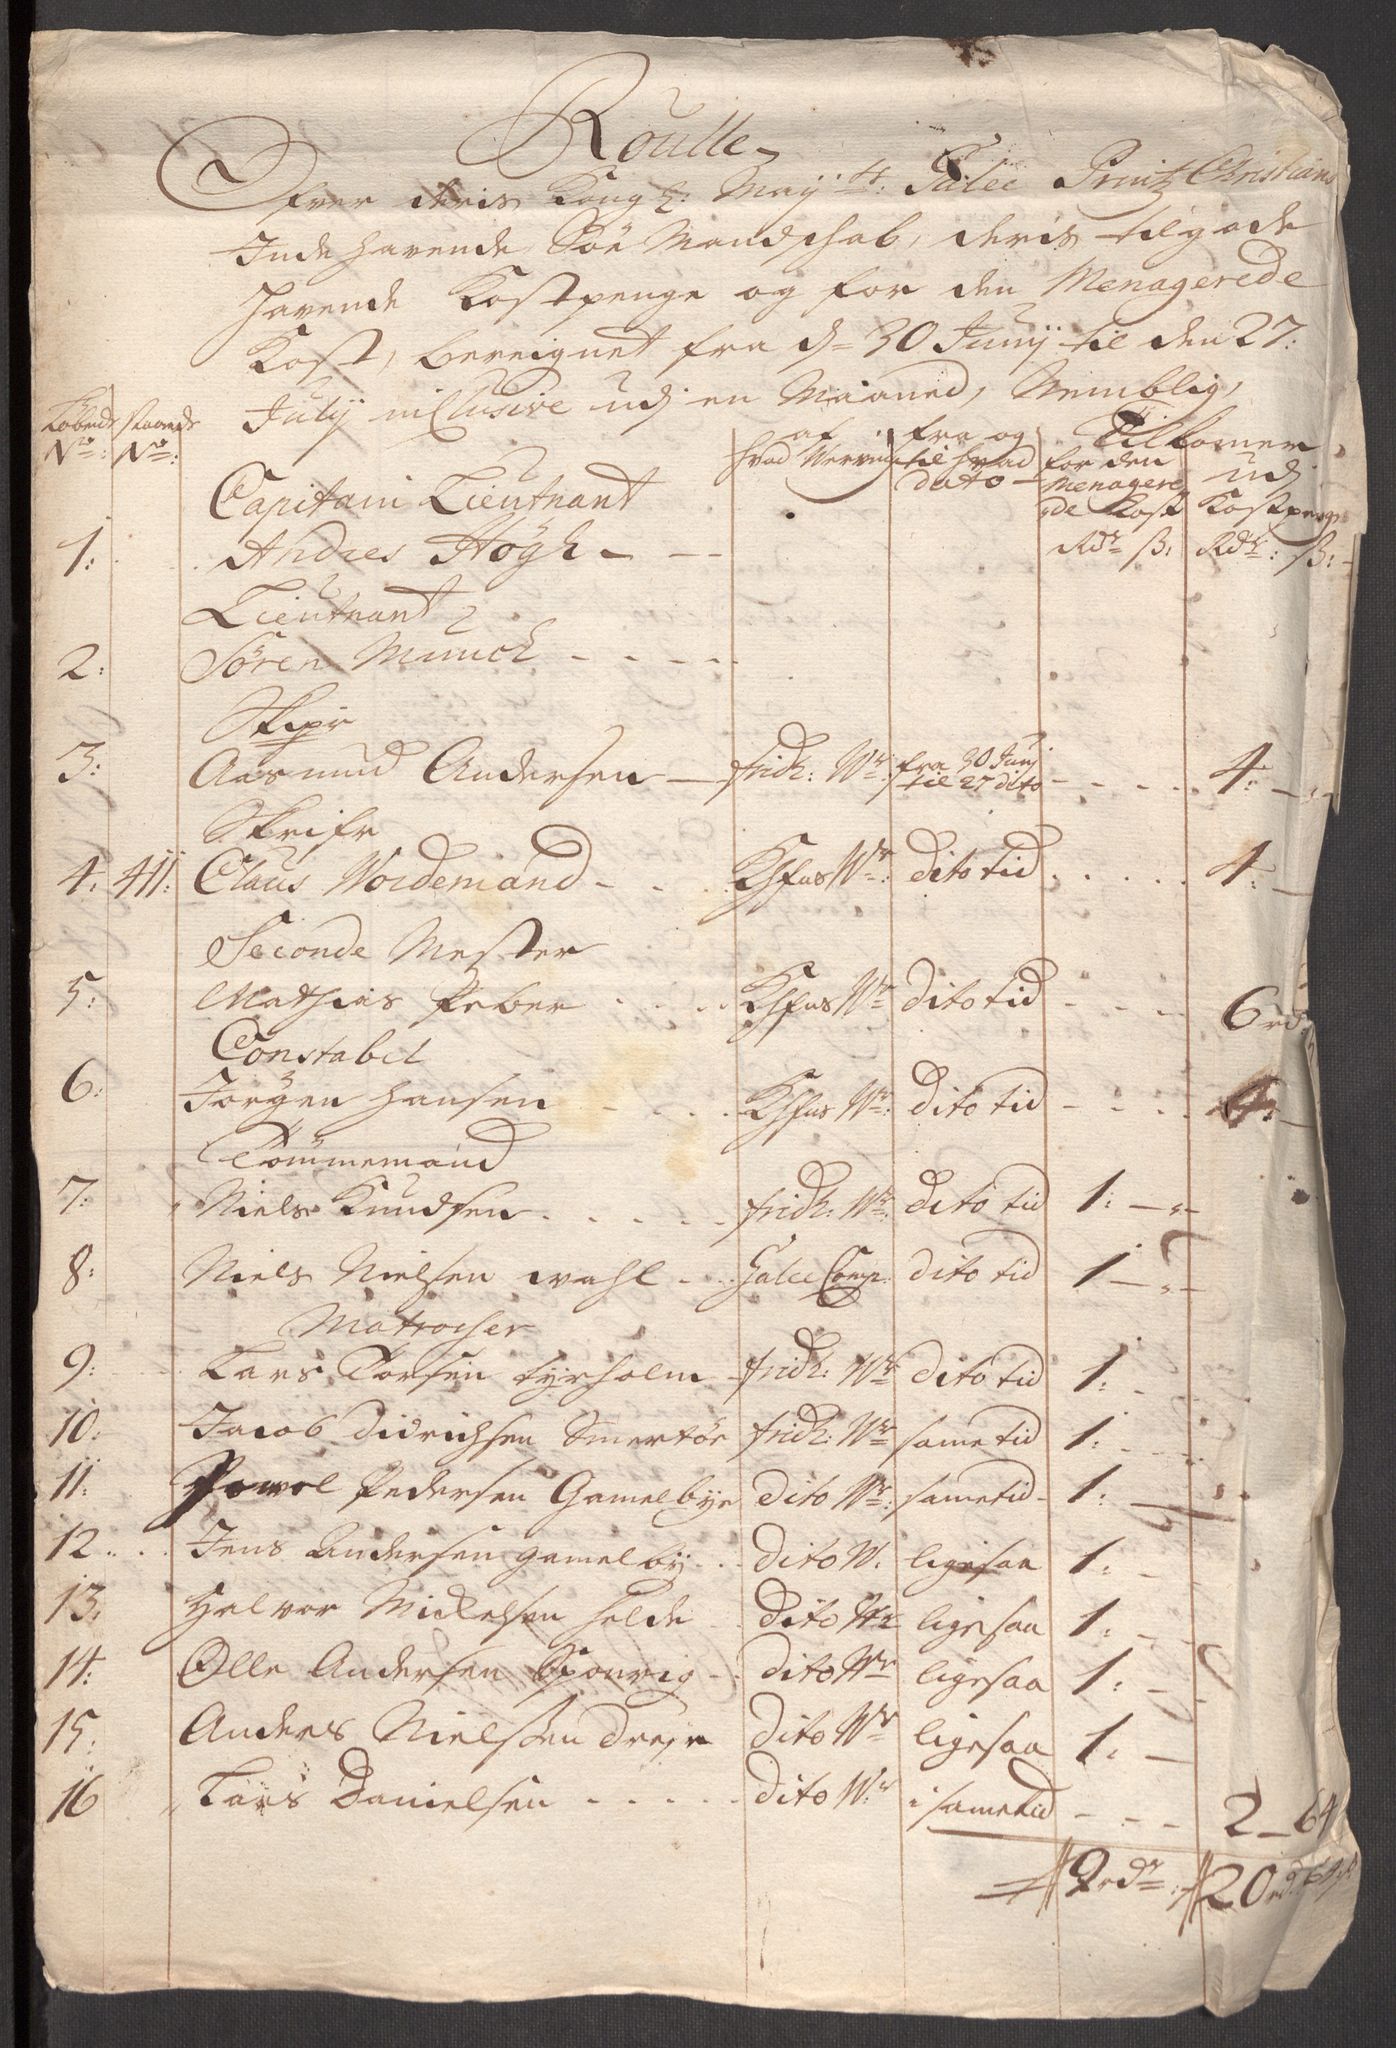 Roulle
Ofver deris Kongl: Mayᵗˢ: Galee Printz Christians
Inde havende Söe Mandschab, deris tilgode
havende Kostpenge og for den Menagerede
Kost, bereignet fra dn 30 Junij til den 27:
July inClusive udj en Maaned, Nemblig,
Löbende Nro: staaende Nro: af hvad Werving fra og til hvad dato Tilkomer
for den Menagerede Kost udj Kostpenge
Rdr ß: Rdr: ß:
Capitain Lieutnant
1: Andres Högh
Lieutnant
2: Sören Munch
Skipr
3: Aasmund Andersen fridh: Wr: fra 30 Junj til 27 dito 4:
Skrifr
4: 411: Claus Nordemand Khfus Wr: dito tid 4:
Seconde Mester
5: Mathias Peber Khfus Wr dito tid 6 rd:
Constabel
6: Jörgen Hansen Khfus Wr: dito tid 4:
Tömmemand
7: Niels Knudsen fridh: Wr: dito tid 1:
8: Niels Nielsen wahl Galee Comp: dito tid 1
Matrosser
9: Lars Torsen fyrholm fridh: Wr dito tid 1:
10: Jacob Didrichsen Smertöe fridh: Wr same tid 1:
11: Powel Pedersen Gamelbye dito Wr: same tid 1:
12 Jens Andersen gamelby dito W: ligesaa 1:
13: Halvor Mickelsen Helde dito Wr ligesaa 1:
14: Olle Andersen Sponvig dito Wr ligesaa 1:
15: Anders Nielssen Dreje dito Wr ligesaa 1:
16 Lars Danielsen dito Wr i same tid 2 64
9 rdr: 20 rd: 64 ß